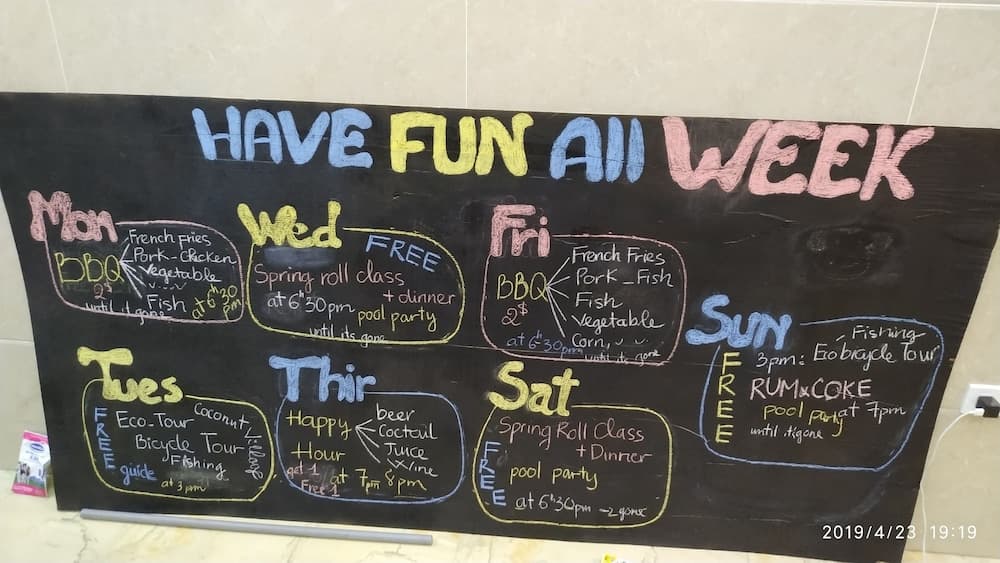 HAVE FUN All WEEK
Mon
BBQ
2$
French Fries
Pork-Chicken
Vegetable
Fish
at 6h30 pm
until it gone
Wed
FREE
Spring roll class
+ dinner
at 6h30pm
pool party
until its gone
Fri
BBQ
2$
French Fries
Pork_Fish
Fish
Vegetable
Corn,
at 6h30pm
until its gone
Sun
FREE
Fishing
3pm: Ecobicycle Tour
RUM&COKE
pool party at 7pm
until .tigone
Tues
FREE
Eco-Tour Coconut Village
Bicycle Tour
Fishing
guide
at 3 pm
Thir
Happy
Hour
beer
Coctail
Juice
Wine
get 1
Free 1
at 7pm 8pm
Sat
FREE
Spring Roll Class
+ Dinner
pool party
at 6h30pm
2019/4/23 19:19